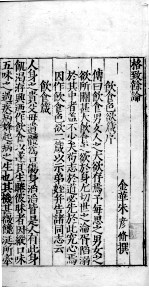 格致餘論
金華朱彥脩撰
飲食色欲箴序
傳曰飲食男女人之大欲存焉予每思之男女之
欲所關甚大飲食之欲於身尤切世之淪胥陷溺
於其中者蓋不少矣苟志於道必先於此究心焉
因作飲食色欲二箴以示弟姪并告諸同志云
飲食箴
人身之貴父母遺體爲口傷身滔滔皆是人有此身
飢渴洊興迺作飲食以遂其生彼昧者因縱口味
五味之過疾病蜂起病之生也其機甚微饞涎所牽